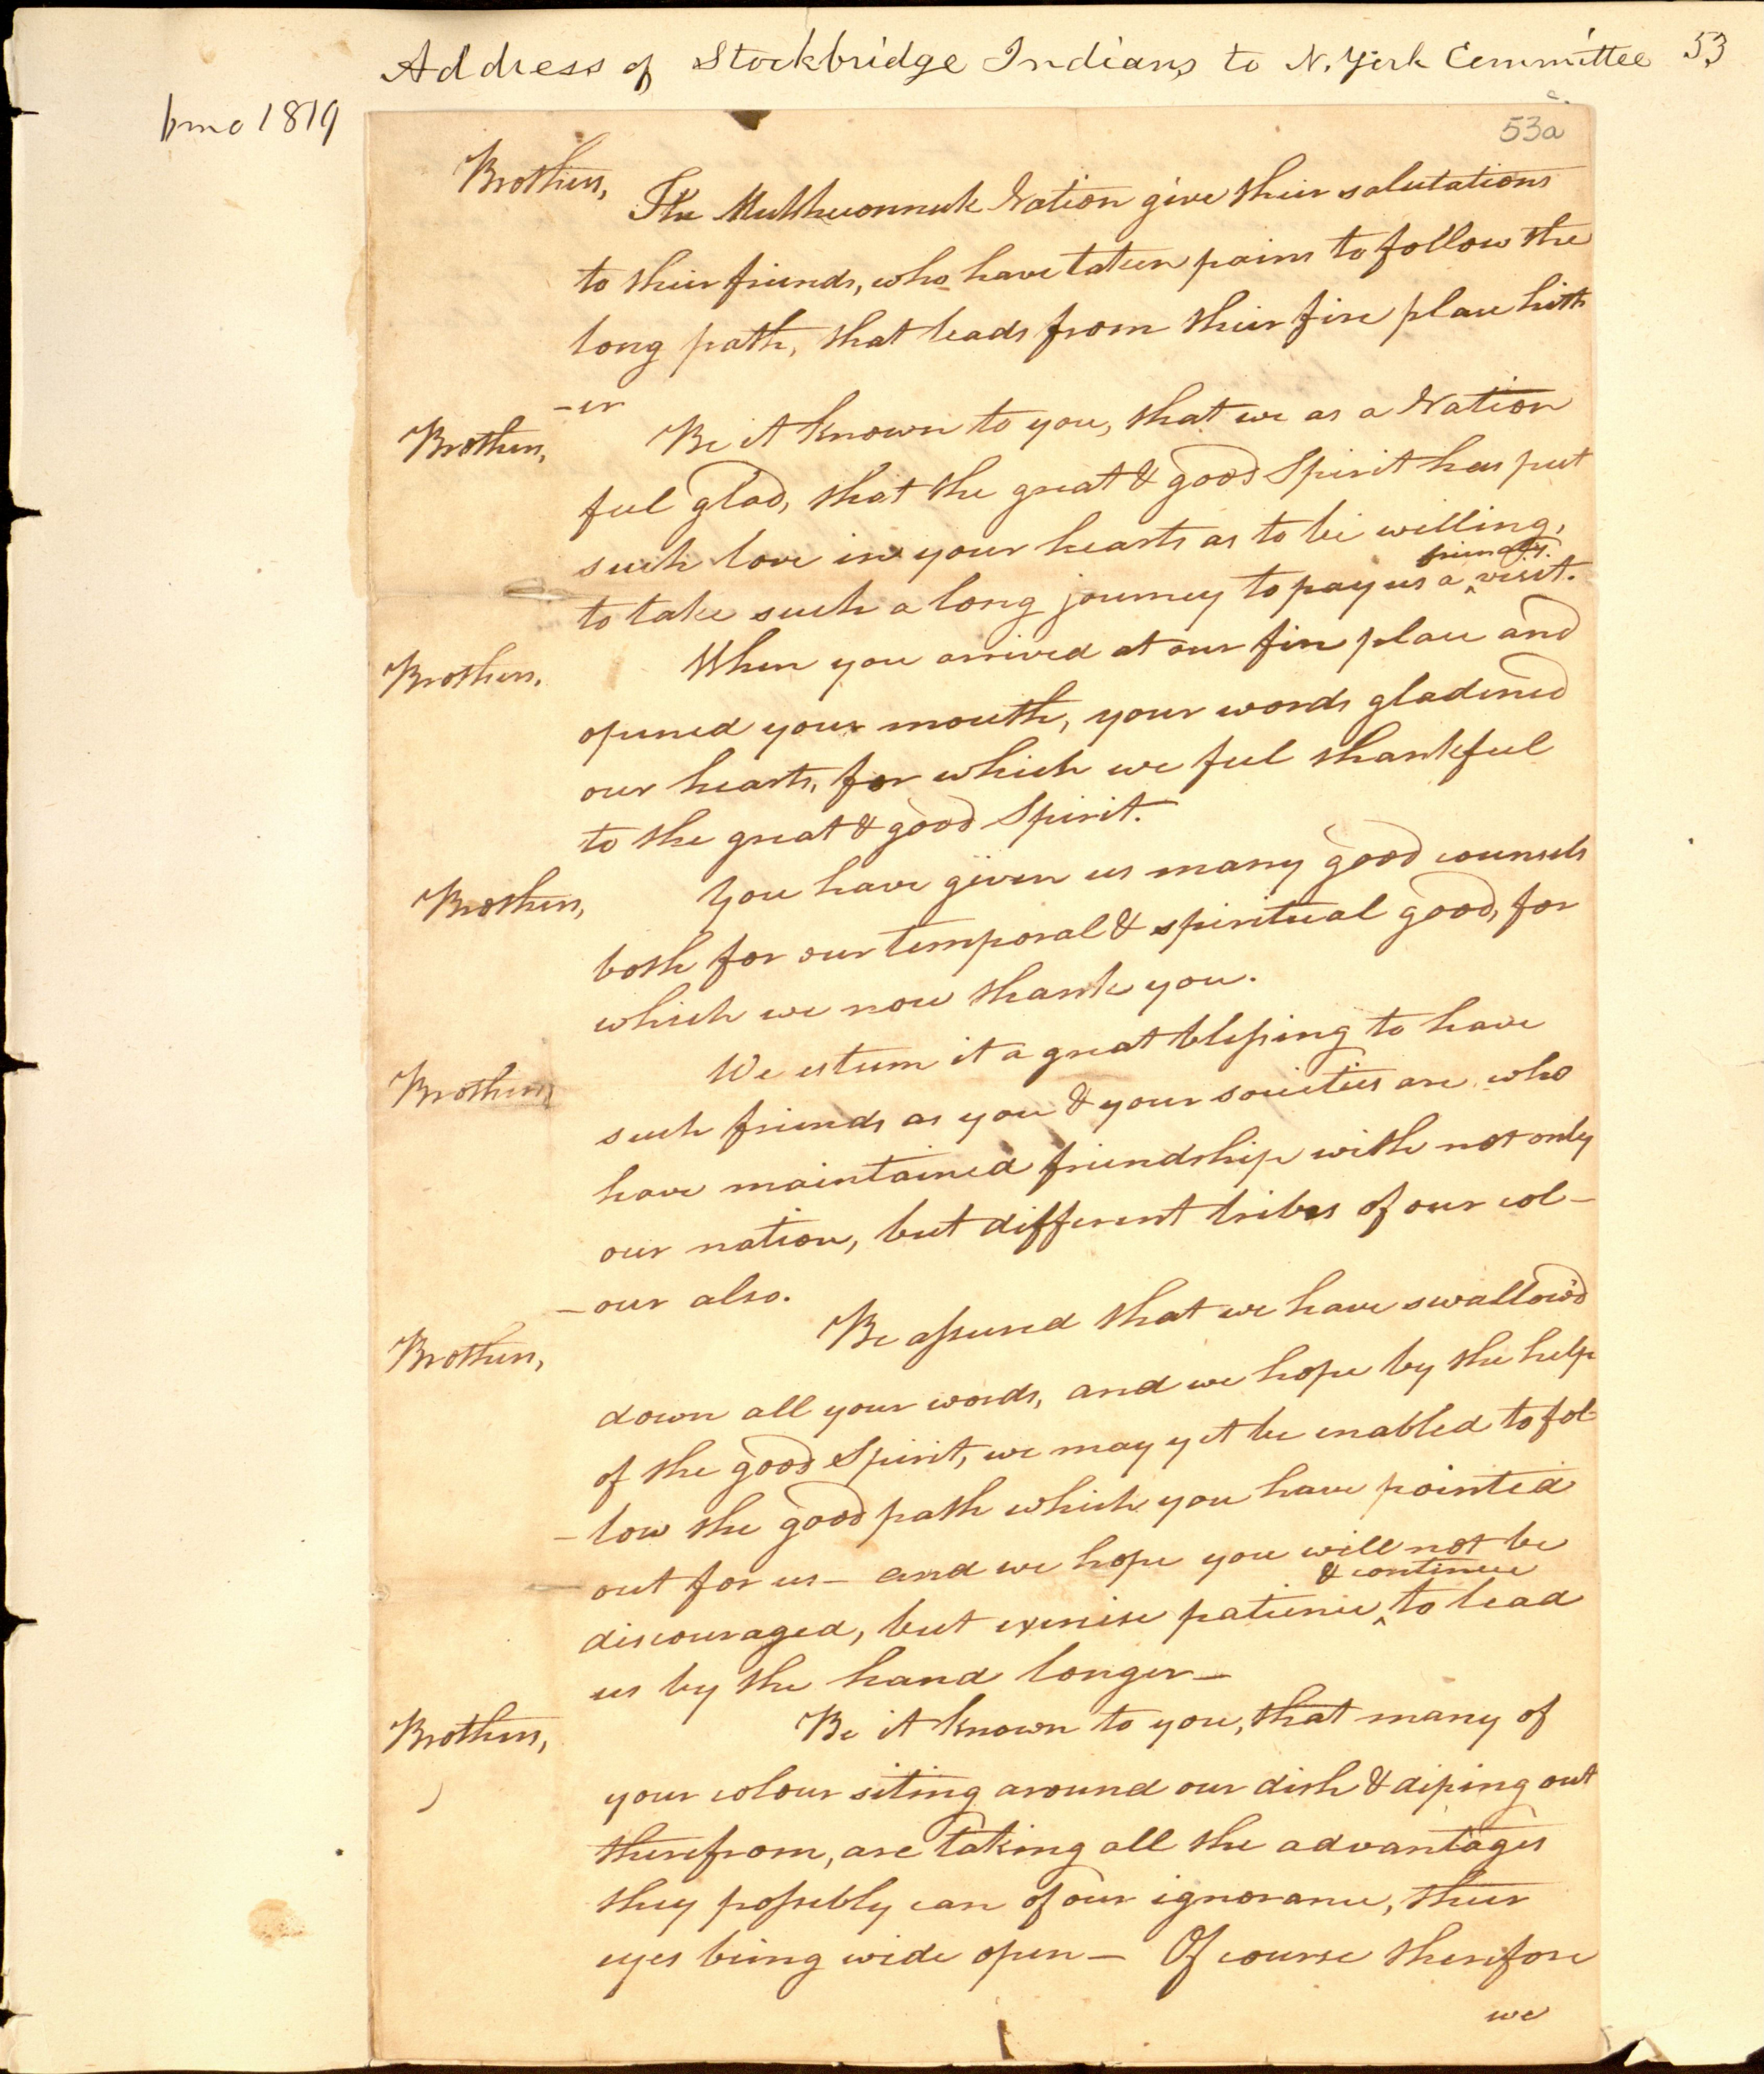 Address of Stockbridge Indians to N. York Committee 53
6 mo 1819
53a
Brothers, The Muhheconnuk Nation give their salutations
to their friends, who have taken pains to follow the
long path, that leads from their fire place hith
-er
Brothers, Be it known to you, that we as a Nation
feel glad, that the great & good Spirit has put
such love in your hearts as to be willing,
to take such a long journey to pay us a friendly visit.
Brothers, When you arrived at our fire place and
opened your mouth, your words gladened
our hearts, for which we feel thankful
to the great & good Spirit.
Brothers, You have given us many good counsels
both for our temporal & spiritual good, for
which we now thank you.
Brothers, We esteem it a great blessing to have
such friends as you & your societies are who
have maintained friendship with not only
our nation, but different tribes of our col-
-our also.
Brothers, Be assured that we have swallow'd
down all your words, and we hope by the help
of the good Spirit, we may yet be enabled to fol-
-low the good path which you have pointed
out for us - and we hope you will not be
discouraged, but exercise patience & continue to lead
us by the hand longer -
Brothers, Be it known to you, that many of
your colour siting around our dish & diping out
therefrom, are taking all the advantages
they possibly can of our ignorance, their
eyes being wide open - Of course therefore
we